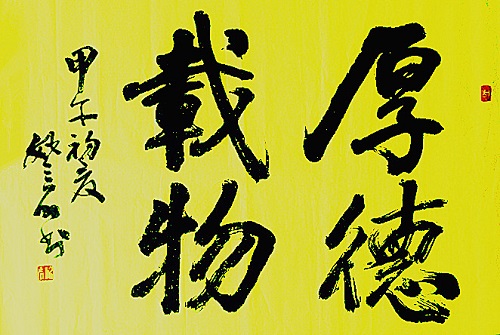 厚德
載物
甲午初夏